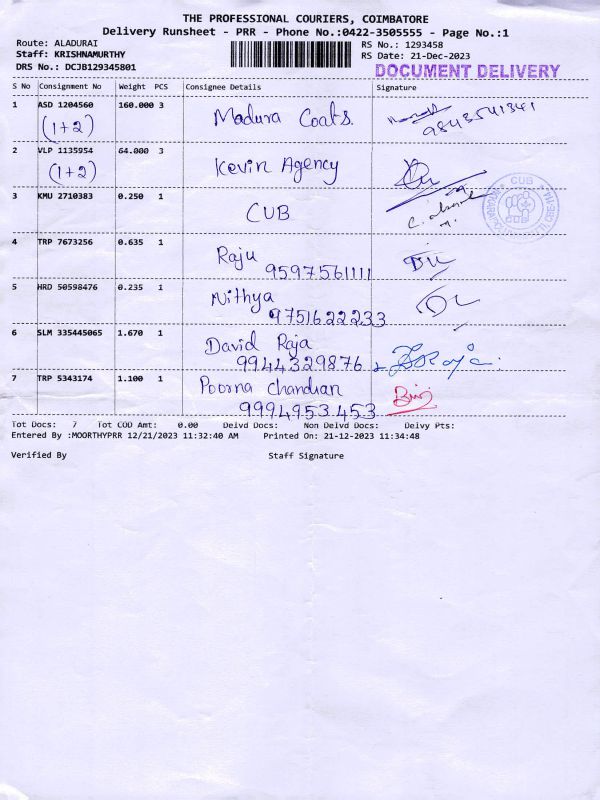 THE PROFESSIONAL COURIERS, COIMBATORE
Delivery Runsheet - PRR - Phone No.:0422-3505555 - Page No.:1
Route: ALADURAI RS No.: 1293458
Staff: KRISHNAMURTHY RS Date: 21-Dec-2023
DRS No.: DCJB129345801 DOCUMENT DELIVERY
S No Consignment No Weight PCS Consignee Details Signature
1 ASD 1204560 160.000 3 Madura Coats. 9843541341
(1+2)
2 VLP 1135954 64.000 3 Kevin Agency
(1+2)
3 KMU 2710383 0.250 1 CUB CUB
4 TRP 7673256 0.635 1 Raju
9597561111
5 HRD 50598476 0.235 1 Nithya
9751622233
6 SLM 335445065 1.670 1 David Raja
9944329876
7 TRP 5343174 1.100 1 Poorna Chandian
9994953453
Tot Docs: 7 Tot COD Amt: 0.00 Delvd Docs: Non Delvd Docs: Delvy Pts:
Entered By :MOORTHYPRR 12/21/2023 11:32:40 AM Printed On: 21-12-2023 11:34:48
Verified By Staff Signature